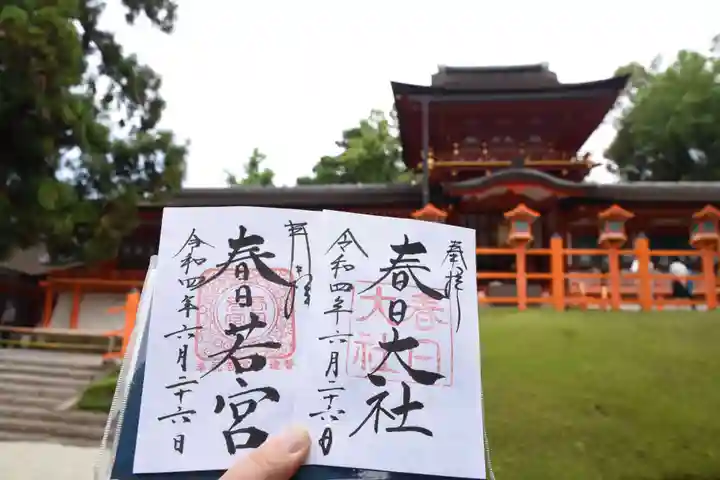 奉拝
春日大社
春日
大社
令和四年六月二十六日
奉拝
春日若宮
令和四年六月二十六日